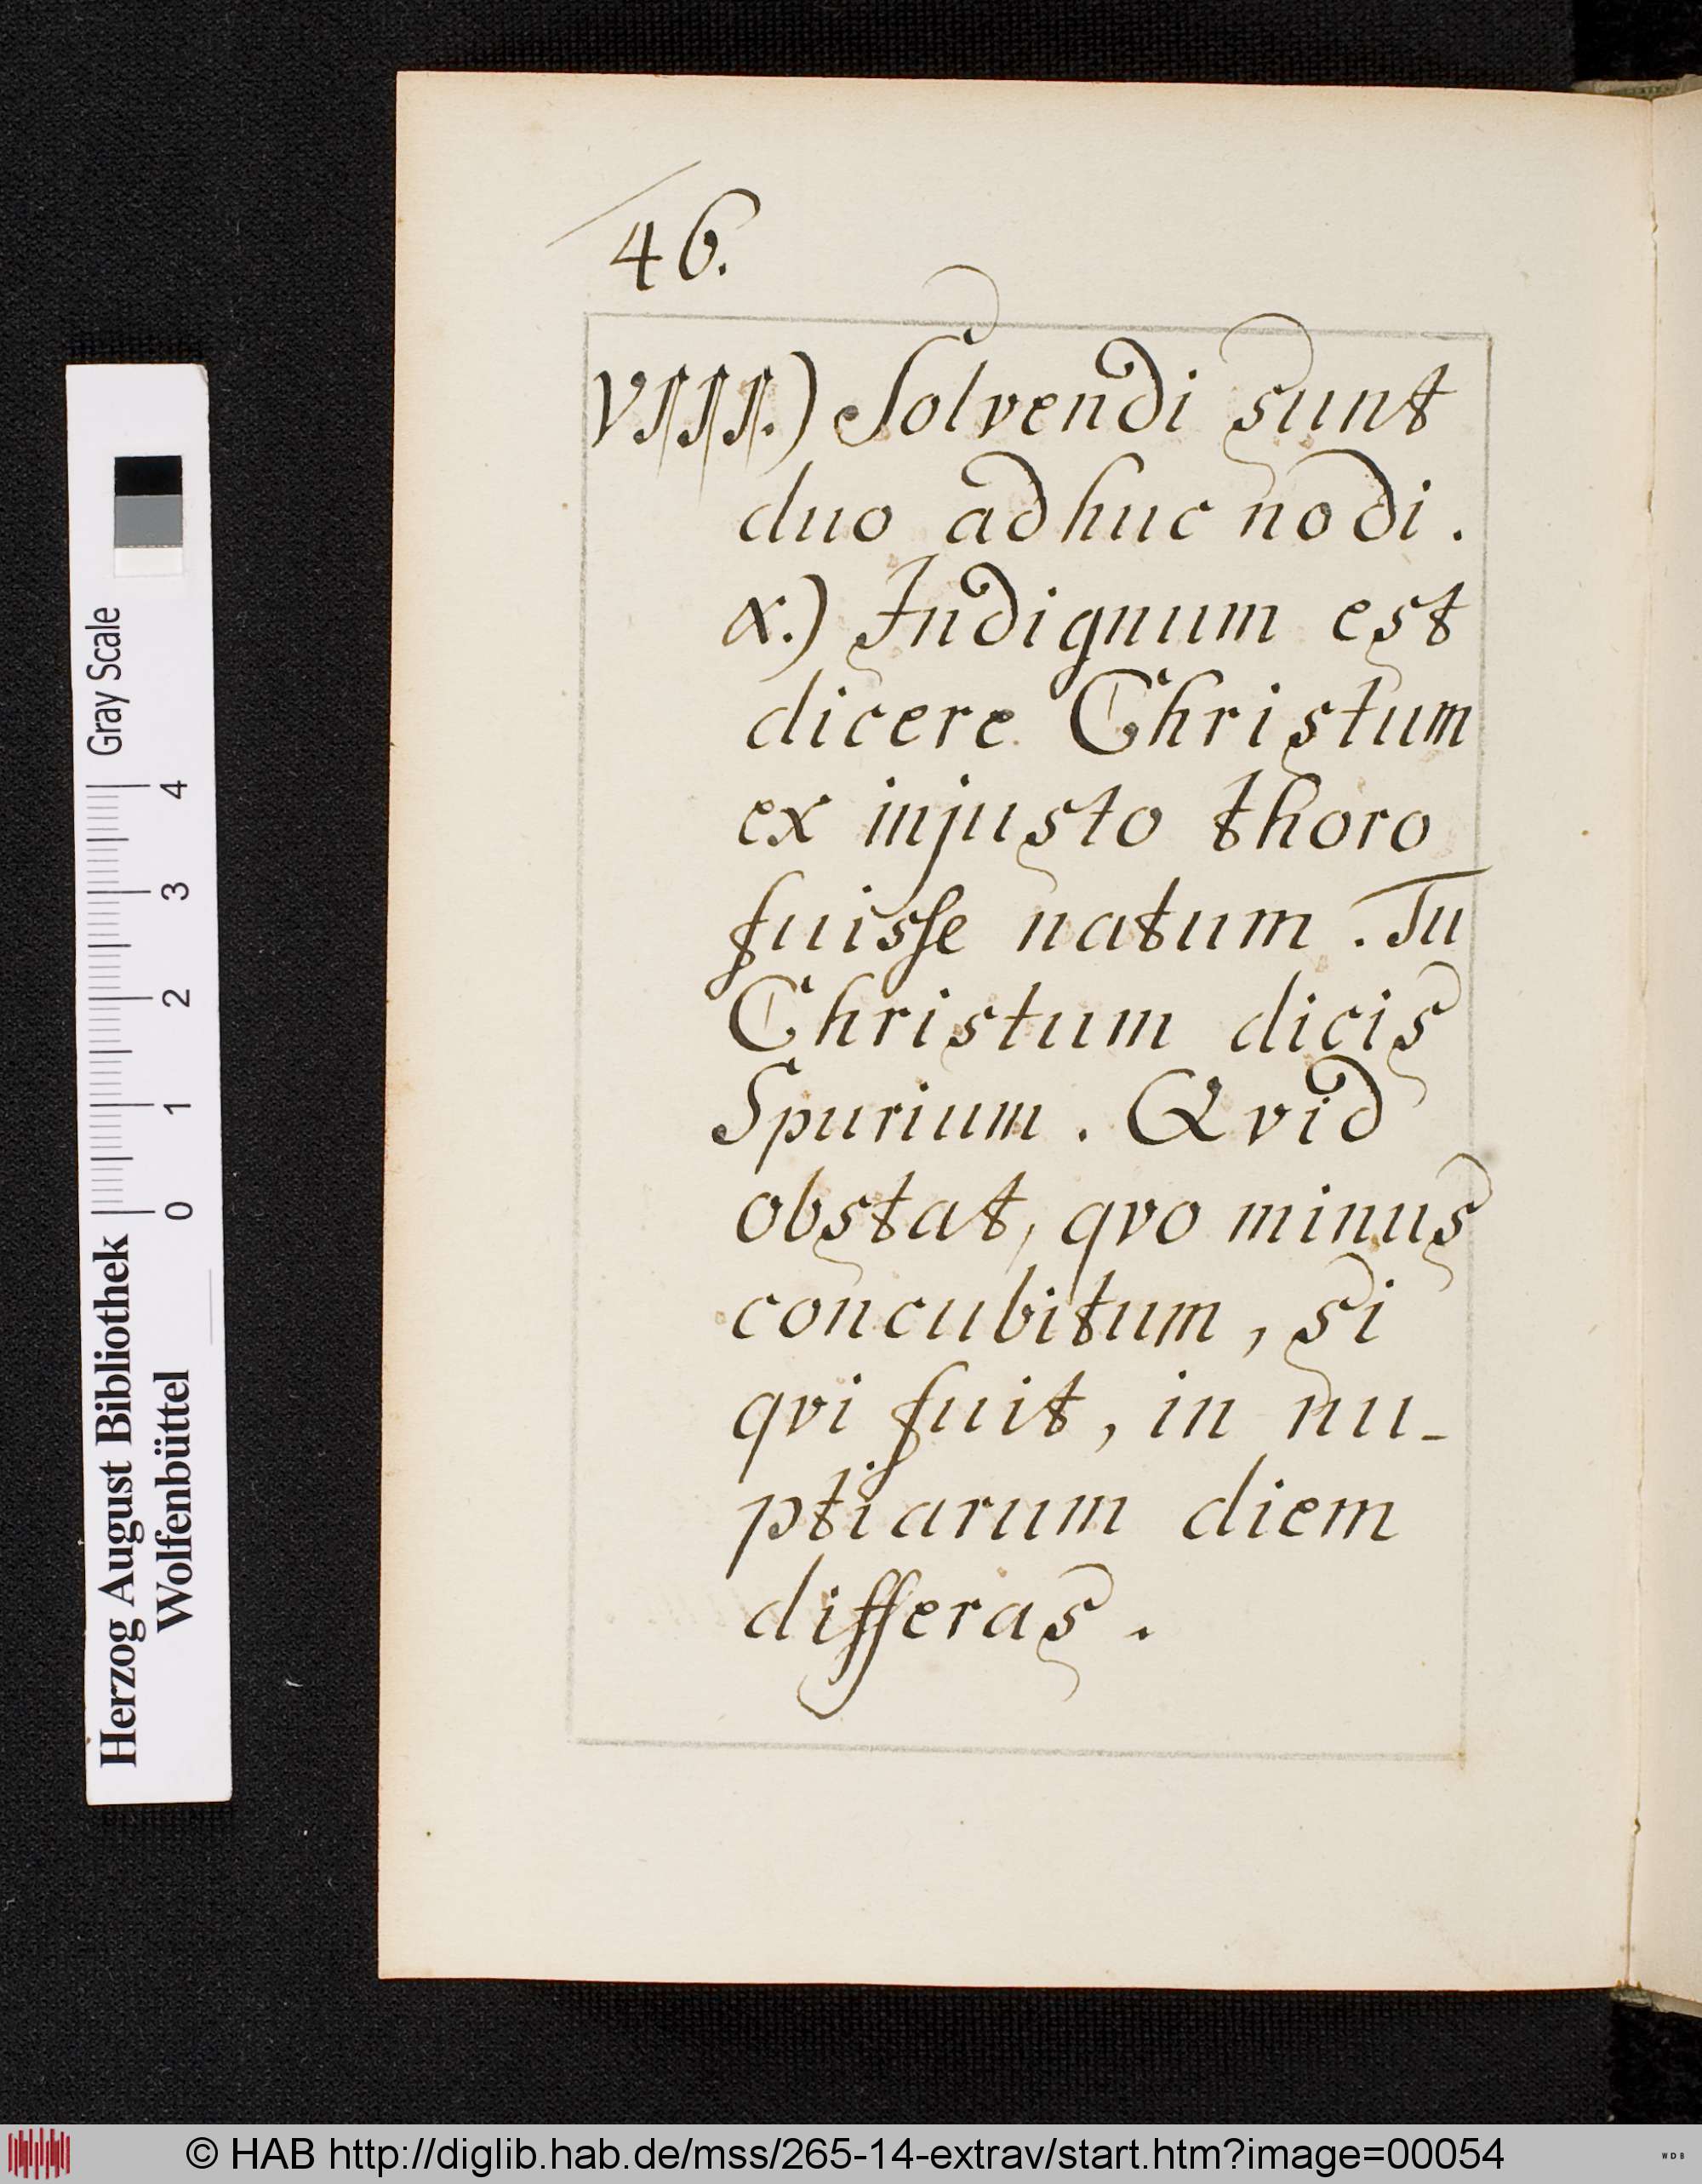 46.
VIIII.) Solvendi sunt
duo adhuc nodi.
α.) Indignum est
dicere Christum
ex injusto thoro
fuisse natum. Tu
Christum dicis
Spurium. Qvid
obstat, qvo minus
concubitum, si
qvi fuit, in nu-
ptiarum diem
differas.
Herzog August Bibliothek
Wolfenbüttel
0 1 2 3 4
Gray Scale
© HAB http://diglib.hab.de/mss/265-14-extrav/start.htm?image=00054
WDB